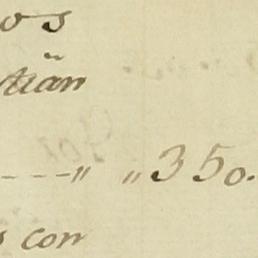 os
tiän
----" "350.
s con